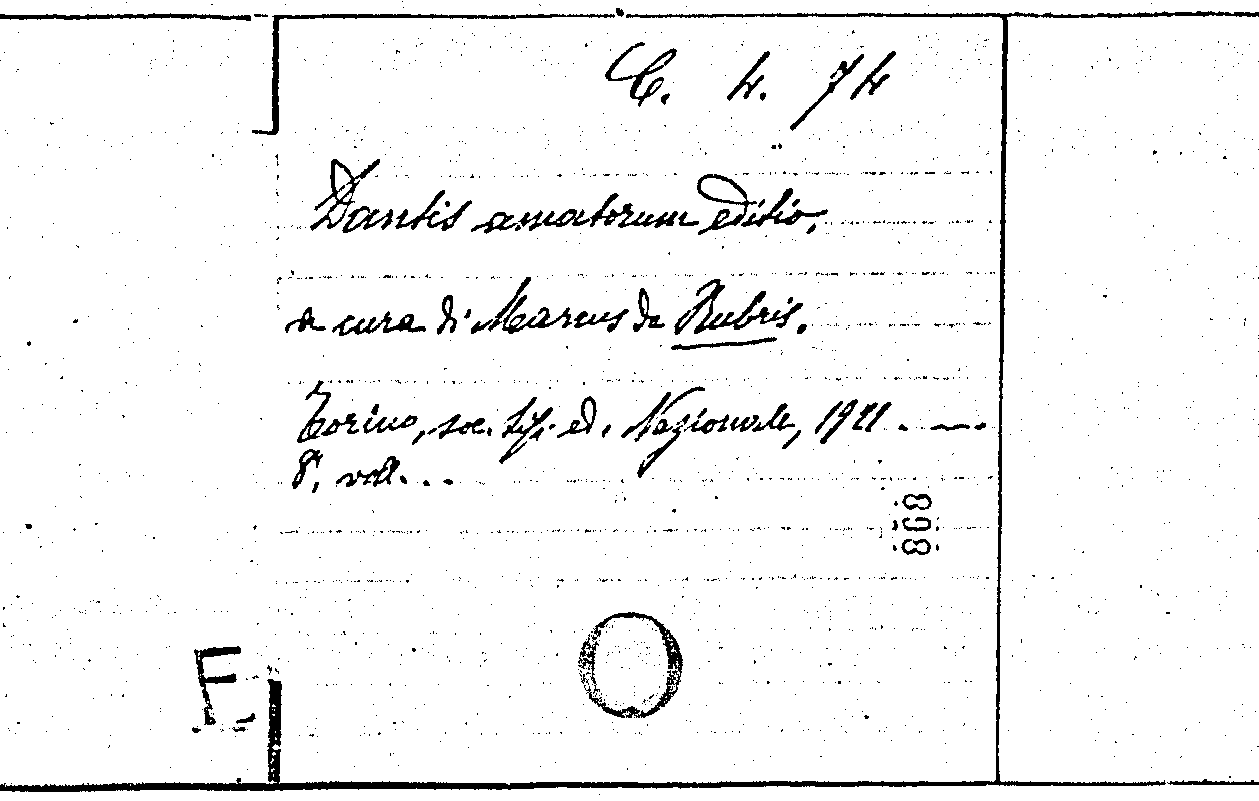 C. 4. 74
Dantis amatorum editio,
a cura di Marcus de Rubris.
Torino, soc. tip. ed. Nazionale, 1921. —.
8°, voll. . .
868
F